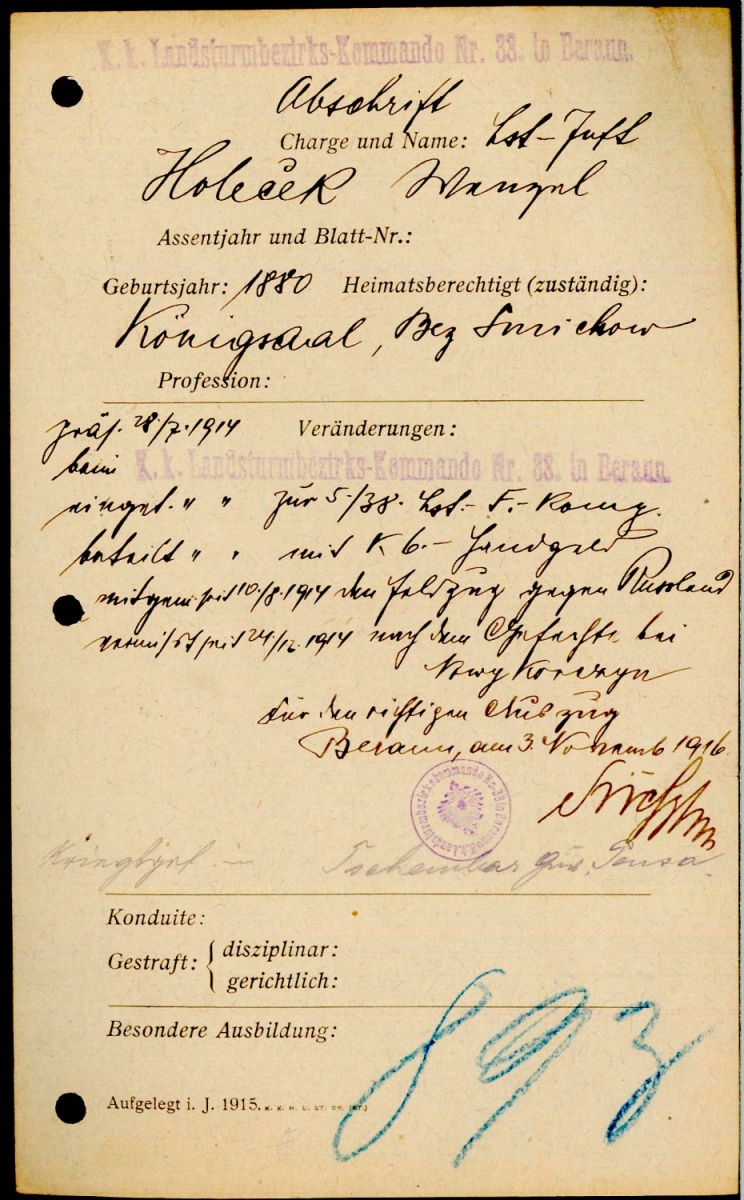 K. k. Landsturmbezirks-Kommando Nr. 38. in Beraun.
Abschrift
Charge und Name: Lst-Inft
Holeček Wenzel
Assentjahr und Blatt-Nr.:
Geburtsjahr: 1880 Heimatsberechtigt (zuständig):
Königsaal, Bez Smichow
Profession:
präs. 28./7. 1914 Veränderungen:
beim K. k. Landsturmbezirks-Kommando Nr. 38. in Beraun.
einget. " " zur 5./38. Lst.- F.- Komp.
beteilt " " mit K 6.- Handgeld
mitgem. seit 10./8. 1914 den Feldzug gegen Russland
vermisst seit 24/12. 1914 nach dem Gefechte bei
Nowy Korczyn
Für den richtigen Auszug
Beraun, am 3. Novemb 1916.
K.k. Landsturmbezirkskommando No. 38 in Beraun
Kriegsgef. in Tschembar Guv. Pensa.
Konduite:
Gestraft: { disziplinar:
gerichtlich:
Besondere Ausbildung:
Aufgelegt i. J. 1915.
893